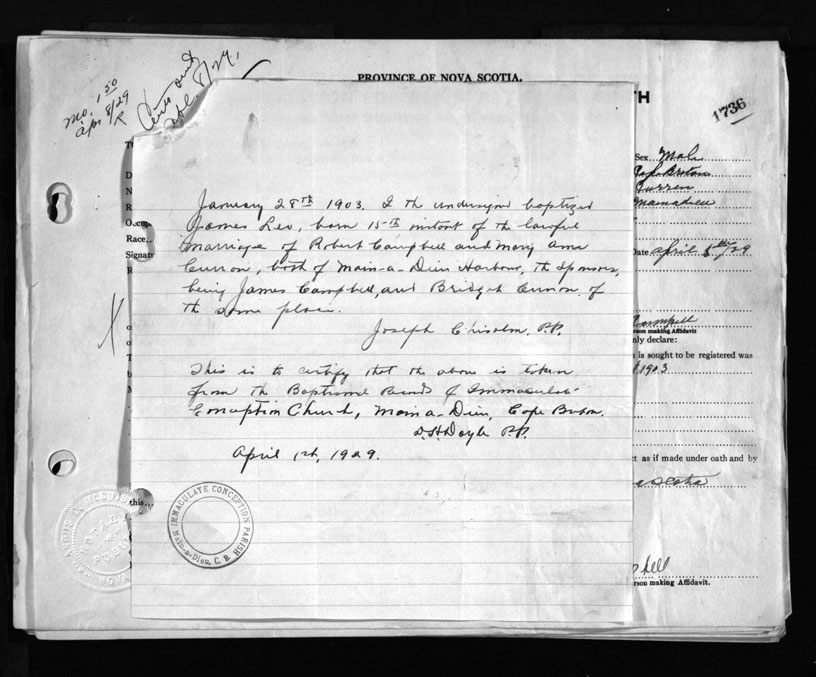 Mo. 1 50
Apr 8/29
R
Certs out
8/29,
PROVINCE OF NOVA SCOTIA.
TH
1736
Sex Male
Cape Breton
Curren
Mainadieu
Date April 5th/29
Campbell
rson making Affidavit
nly declare:
is sought to be registered was
1903
ct as if made under oath and by
a Scotia
bell
rson making Affidavit.
Occup
Race..
Signat
this....
January 28th 1903. I the undersigned baptized
James Leo, born 15th instant of the lawful
marriage of Robert Campbell and Mary Ann
Curron, both of Main-a-Dieu Harbour, the sponsors,
being James Campbell, and Bridget Curron of
the same place.
Joseph Chisholm, P.P.
This is to certify that the above is taken
from the Baptismal Records of Immaculate
Conception Church, Main a-Dieu, Cape Breton.
D.H. Doyle P.P.
April 1st, 1929.
IMMACULATE CONCEPTION PARISH
Main-a-Dieu, C. B.